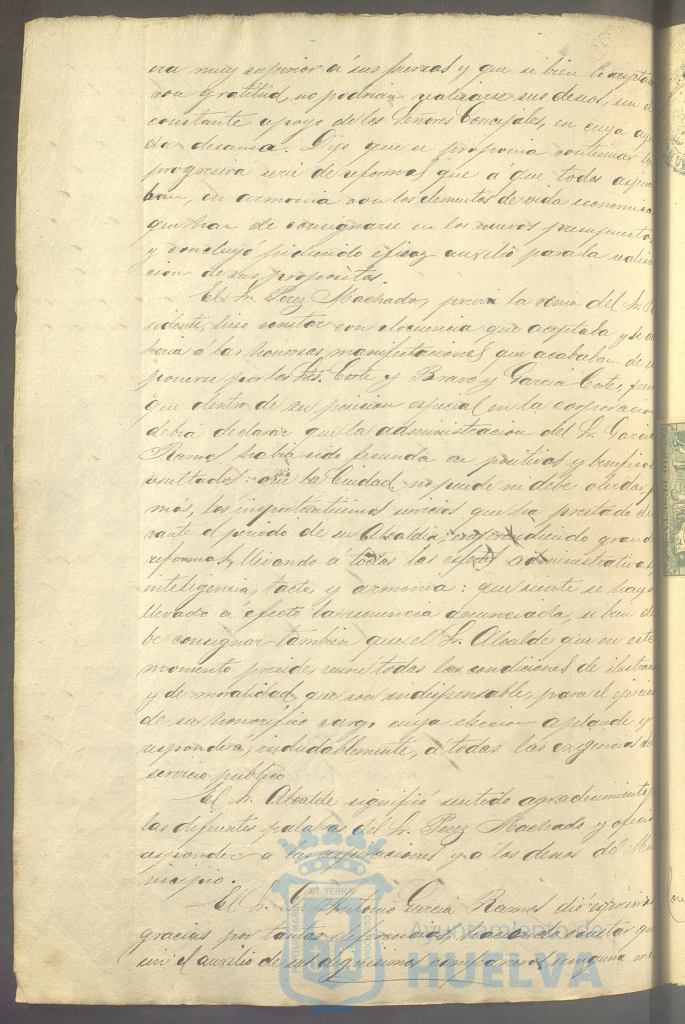 era muy superior á sus fuerzas y que si bien lo acepta
con gratitud, no podrian realizarse sus deseos, sin el
constante apoyo de los Señores Concejales, en cuya ayu
da descansa. Dijo que se proponia continuar la
progresiva serie de reformas que á que todos aspira
ban, en armonia con los elementos de vida economica
que han de consignarse en los nuevos presupuestos
y concluyó pidiendo eficaz auxilio para la realiza
cion de sus propositos.
El Sr. Perez Machado, previa la venia del Sr. Pre
sidente, hizo constar con elocuencia que aceptaba y se ad
heria á las honrosas manifestaciones que acababan de ex
ponerse por los Sres. Corte y Bravo y Garcia Cortes,
que dentro de su posicion especial en la corporacion
debia declarar que la administracion del Sr. Garcia
Ramos habia sido fecunda en positivos y beneficiosos
resultados: que la Ciudad no puede ni debe olvidar ja
más, los importantisimos servicios que ha prestado du
rante el periodo de su Alcaldia, emprendiendo grandes
reformas, llevando á todas las esferas administrativas,
inteligencia, tacto y armonia: que siente se haya
llevado á efecto la renuncia anunciada, si bien de
be consignar tambien que el Sr. Alcalde que en este
momento preside, reune todas las condiciones de ilustracion
y de moralidad que son indispensables para el ejercicio
de su honorifico cargo cuya eleccion aplaude y
responderá, indudablemente, á todas las exigencias del
servicio publico.
El Sr. Alcalde significó sentido agradecimiento á
las diferentes palabras del Sr. Perez Machado y ofreció
responder á las aspiraciones y á los deseos del Mu
nicipio.
El Sr. Antonio Garcia Ramos dió expresivas
gracias por tantas deferencias, haciendo constar que
sin el auxilio de sus dignisimos compañeros, ninguna me
Ayuntamiento de
HUELVA